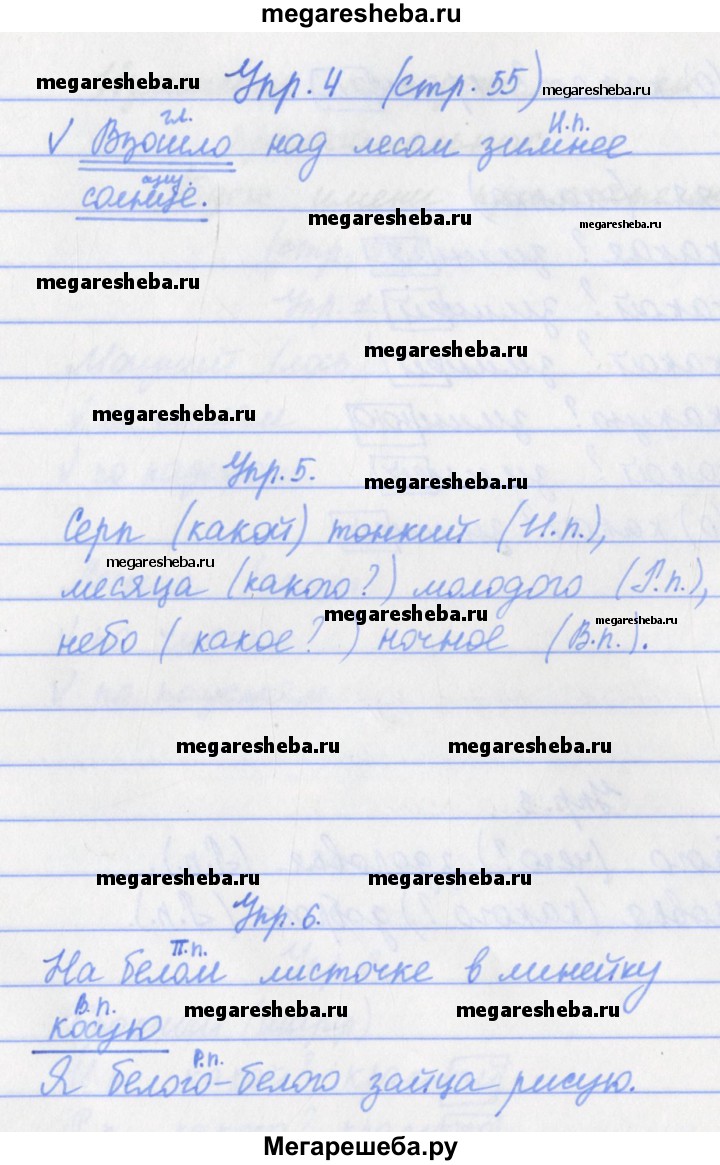 megaresheba.ru
Упр. 4 (стр. 55)
megaresheba.ru megaresheba.ru
гл. И.п.
√ Взошло над лесом зимнее
сущ.
солнце.
megaresheba.ru megaresheba.ru
megaresheba.ru
megaresheba.ru
megaresheba.ru
Упр. 5.
megaresheba.ru
Серп (какой) тонкий (И.п.),
megaresheba.ru
месяца (какого?) молодого (Р.п.),
megaresheba.ru megaresheba.ru
небо (какое?) ночное (В.п.).
megaresheba.ru megaresheba.ru
megaresheba.ru megaresheba.ru
Упр. 6.
П.п.
На белом листочке в линейку
В.п.
megaresheba.ru megaresheba.ru
косую
Р.п.
Я белого-белого зайца рисую.
Мегарешеба.ру